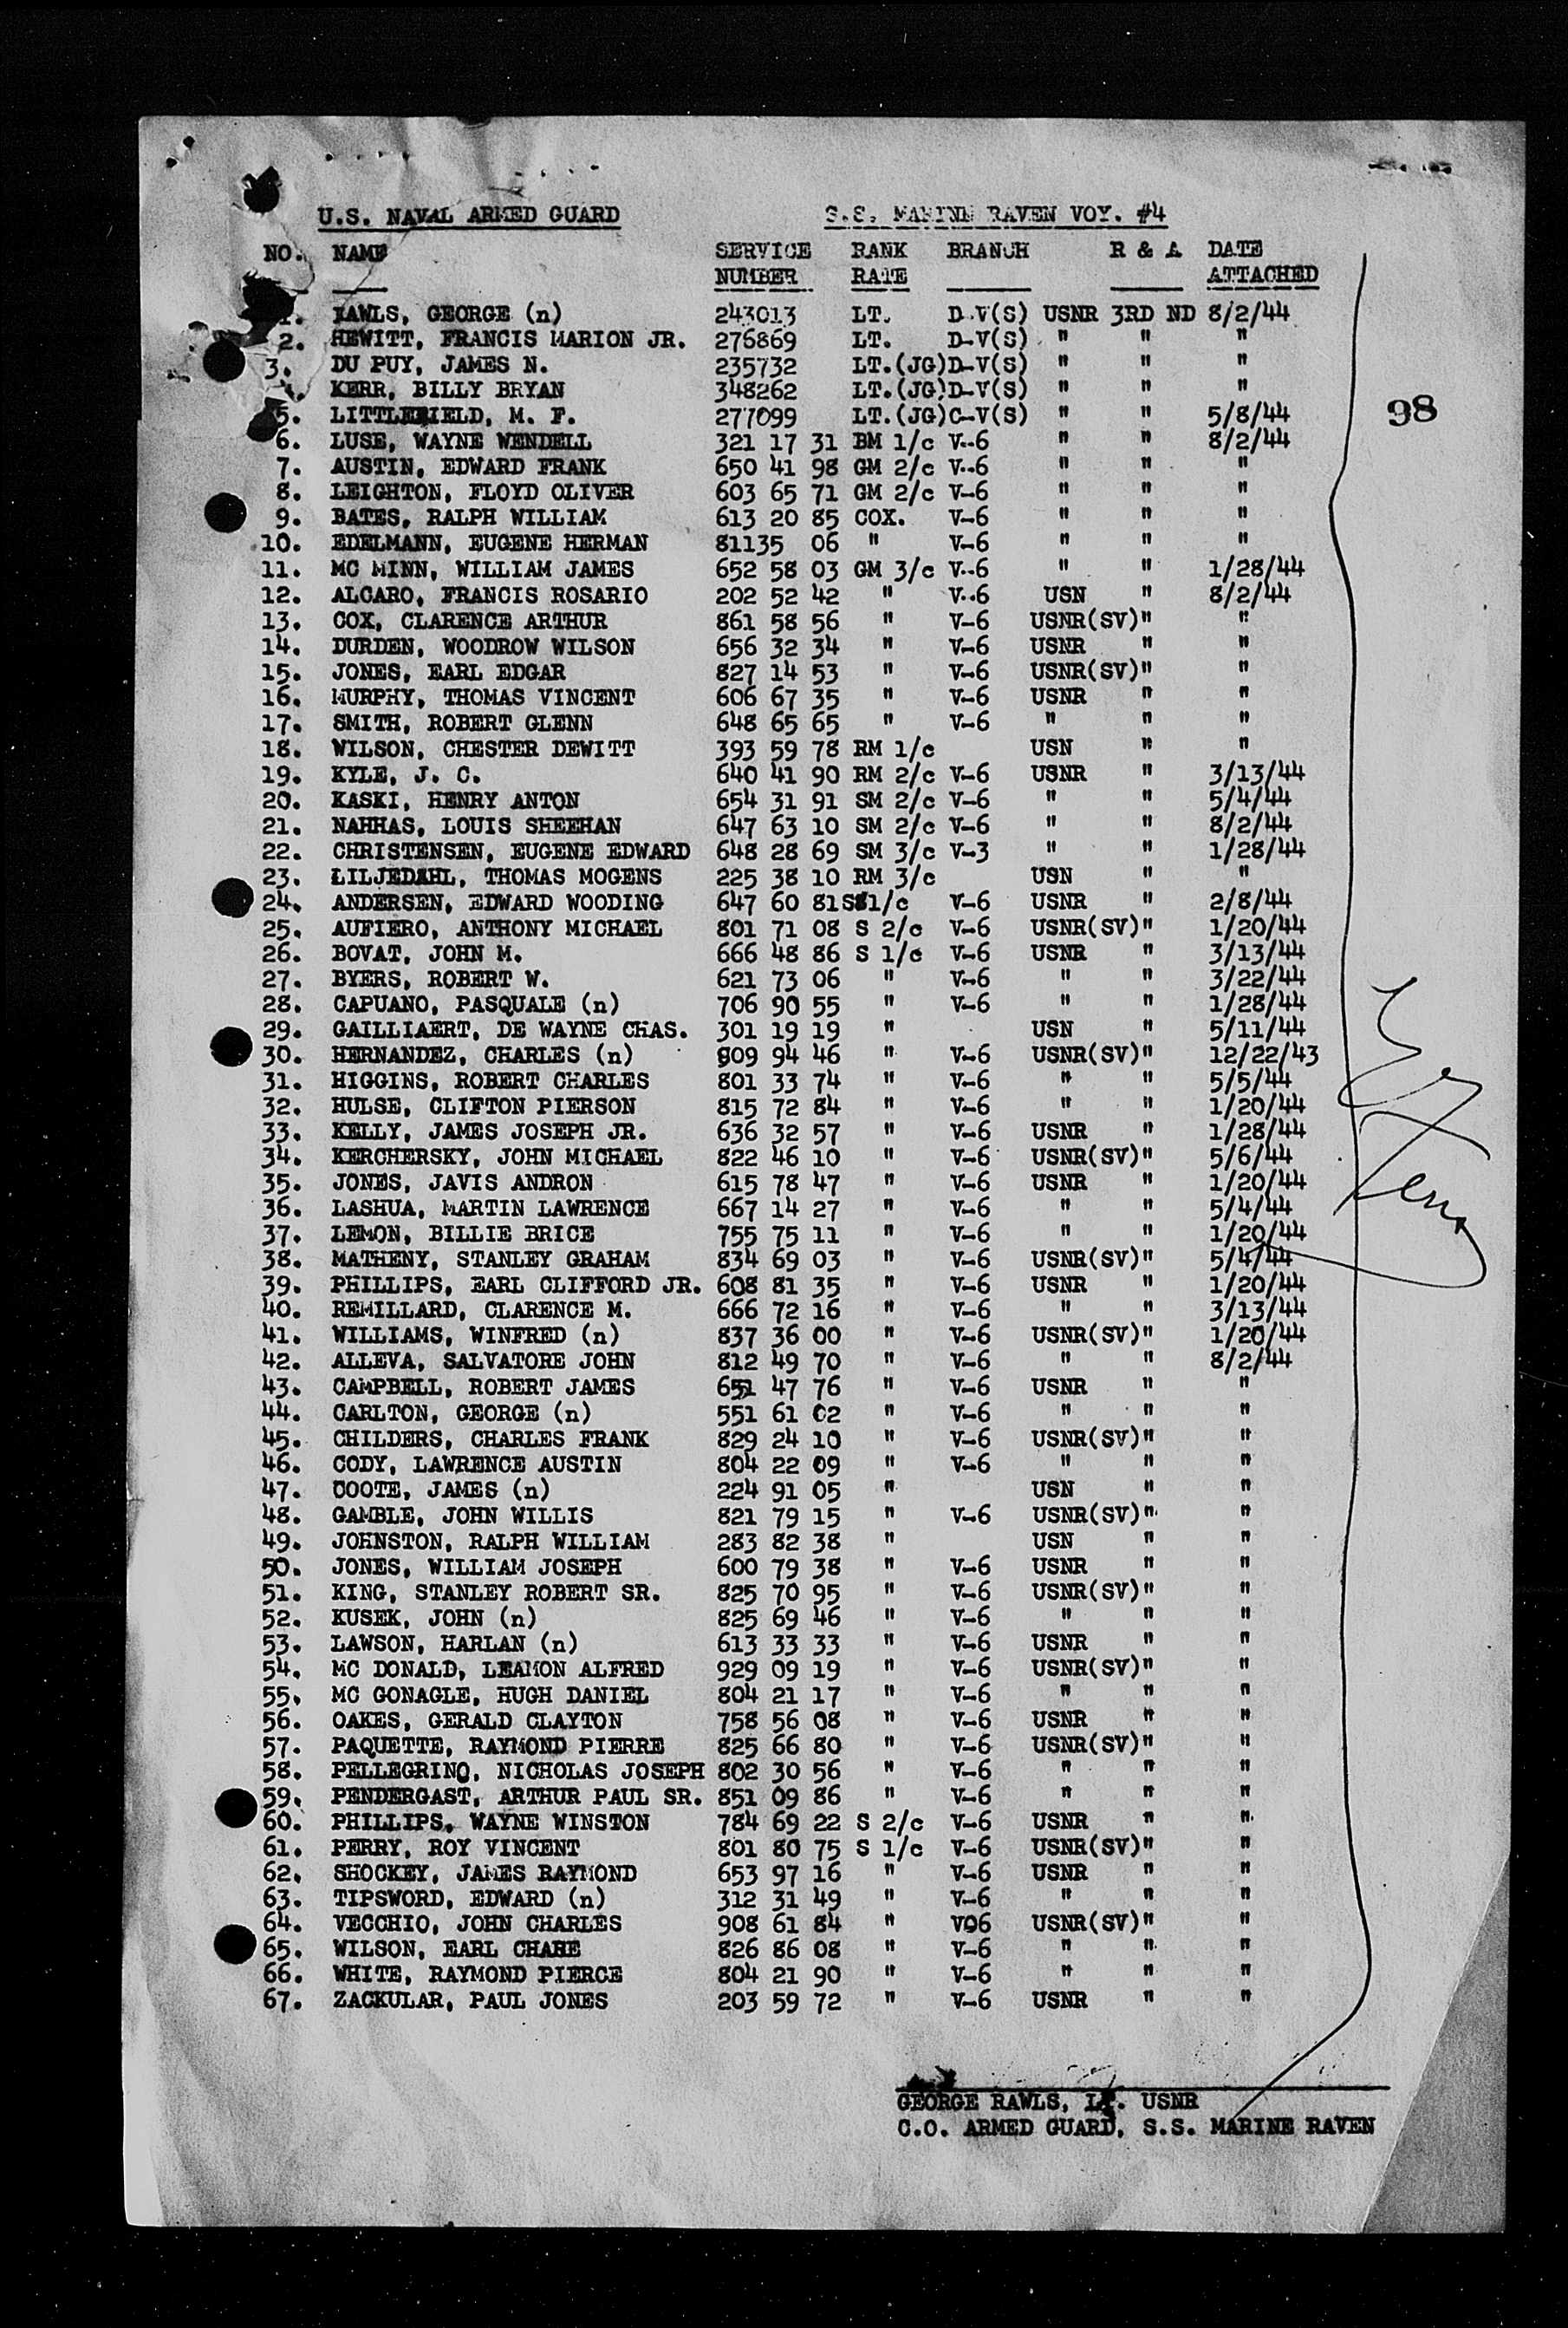 U.S. NAVAL ARMED GUARD S.S. MARINE RAVEN VOY. #4
NO. NAME SERVICE RANK BRANCH R & A DATE
NUMBER RATE ATTACHED
1. RAWLS, GEORGE (n) 243013 LT. D-V(S) USNR 3RD ND 8/2/44
2. HEWITT, FRANCIS MARION JR. 276869 LT. D-V(S) " " "
3. DU PUY, JAMES N. 235732 LT.(JG)D-V(S) " " "
4. KERR, BILLY BRYAN 348262 LT.(JG)D-V(S) " " "
5. LITTLEFIELD, M. F. 277099 LT.(JG)C-V(S) " " 5/8/44
98
6. LUSE, WAYNE WENDELL 321 17 31 BM 1/c V-6 " " 8/2/44
7. AUSTIN, EDWARD FRANK 650 41 98 GM 2/c V-6 " " "
8. LEIGHTON, FLOYD OLIVER 603 65 71 GM 2/c V-6 " " "
9. BATES, RALPH WILLIAM 613 20 85 COX. V-6 " " "
10. EDELMANN, EUGENE HERMAN 81135 06 " V-6 " " "
11. MC MINN, WILLIAM JAMES 652 58 03 GM 3/c V-6 " " 1/28/44
12. ALCARO, FRANCIS ROSARIO 202 52 42 " V-6 USN " 8/2/44
13. COX, CLARENCE ARTHUR 861 58 56 " V-6 USNR(SV)" "
14. DURDEN, WOODROW WILSON 656 32 34 " V-6 USNR " "
15. JONES, EARL EDGAR 827 14 53 " V-6 USNR(SV)" "
16. MURPHY, THOMAS VINCENT 606 67 35 " V-6 USNR " "
17. SMITH, ROBERT GLENN 648 65 65 " V-6 " " "
18. WILSON, CHESTER DEWITT 393 59 78 RM 1/c USN " "
19. KYLE, J. C. 640 41 90 RM 2/c V-6 USNR " 3/13/44
20. KASKI, HENRY ANTON 654 31 91 SM 2/c V-6 " " 5/4/44
21. NAHHAS, LOUIS SHEEHAN 647 63 10 SM 2/c V-6 " " 8/2/44
22. CHRISTENSEN, EUGENE EDWARD 648 28 69 SM 3/c V-3 " " 1/28/44
23. LILJEDAHL, THOMAS MOGENS 225 38 10 RM 3/c USN " "
24. ANDERSEN, EDWARD WOODING 647 60 81 S 1/c V-6 USNR " 2/8/44
25. AUFIERO, ANTHONY MICHAEL 801 71 08 S 2/c V-6 USNR(SV)" 1/20/44
26. BOVAT, JOHN M. 666 48 86 S 1/c V-6 USNR " 3/13/44
27. BYERS, ROBERT W. 621 73 06 " V-6 " " 3/22/44
28. CAPUANO, PASQUALE (n) 706 90 55 " V-6 " " 1/28/44
29. GAILLIAERT, DE WAYNE CHAS. 301 19 19 " USN " 5/11/44
30. HERNANDEZ, CHARLES (n) 809 94 46 " V-6 USNR(SV)" 12/22/43
31. HIGGINS, ROBERT CHARLES 801 33 74 " V-6 " " 5/5/44
32. HULSE, CLIFTON PIERSON 815 72 84 " V-6 " " 1/20/44
33. KELLY, JAMES JOSEPH JR. 636 32 57 " V-6 USNR " 1/28/44
34. KERCHERSKY, JOHN MICHAEL 822 46 10 " V-6 USNR(SV)" 5/6/44
35. JONES, JAVIS ANDRON 615 78 47 " V-6 USNR " 1/20/44
36. LASHUA, MARTIN LAWRENCE 667 14 27 " V-6 " " 5/4/44
37. LEMON, BILLIE BRICE 755 75 11 " V-6 " " 1/20/44
38. MATHENY, STANLEY GRAHAM 834 69 03 " V-6 USNR(SV)" 5/4/44
39. PHILLIPS, EARL CLIFFORD JR. 608 81 35 " V-6 USNR " 1/20/44
40. REMILLARD, CLARENCE M. 666 72 16 " V-6 " " 3/13/44
41. WILLIAMS, WINFRED (n) 837 36 00 " V-6 USNR(SV)" 1/20/44
42. ALLEVA, SALVATORE JOHN 812 49 70 " V-6 " " 8/2/44
43. CAMPBELL, ROBERT JAMES 651 47 76 " V-6 USNR " "
44. CARLTON, GEORGE (n) 551 61 02 " V-6 " " "
45. CHILDERS, CHARLES FRANK 829 24 10 " V-6 USNR(SV)" "
46. CODY, LAWRENCE AUSTIN 804 22 09 " V-6 " " "
47. COOTE, JAMES (n) 224 91 05 " USN " "
48. GAMBLE, JOHN WILLIS 821 79 15 " V-6 USNR(SV)" "
49. JOHNSTON, RALPH WILLIAM 283 82 38 " USN " "
50. JONES, WILLIAM JOSEPH 600 79 38 " V-6 USNR " "
51. KING, STANLEY ROBERT SR. 825 70 95 " V-6 USNR(SV)" "
52. KUSEK, JOHN (n) 825 69 46 " V-6 " " "
53. LAWSON, HARLAN (n) 613 33 33 " V-6 USNR " "
54. MC DONALD, LEAMON ALFRED 929 09 19 " V-6 USNR(SV)" "
55. MC GONAGLE, HUGH DANIEL 804 21 17 " V-6 " " "
56. OAKES, GERALD CLAYTON 758 56 08 " V-6 USNR " "
57. PAQUETTE, RAYMOND PIERRE 825 66 80 " V-6 USNR(SV)" "
58. PELLEGRINO, NICHOLAS JOSEPH 802 30 56 " V-6 " " "
59. PENDERGAST, ARTHUR PAUL SR. 851 09 86 " V-6 " " "
60. PHILLIPS, WAYNE WINSTON 784 69 22 S 2/c V-6 USNR " "
61. PERRY, ROY VINCENT 801 80 75 S 1/c V-6 USNR(SV)" "
62. SHOCKEY, JAMES RAYMOND 653 97 16 " V-6 USNR " "
63. TIPSWORD, EDWARD (n) 312 31 49 " V-6 " " "
64. VECCHIO, JOHN CHARLES 908 61 84 " V06 USNR(SV)" "
65. WILSON, EARL CHABE 826 86 08 " V-6 " " "
66. WHITE, RAYMOND PIERCE 804 21 90 " V-6 " " "
67. ZACKULAR, PAUL JONES 203 59 72 " V-6 USNR " "
GEORGE RAWLS, LT. USNR
C.O. ARMED GUARD, S.S. MARINE RAVEN